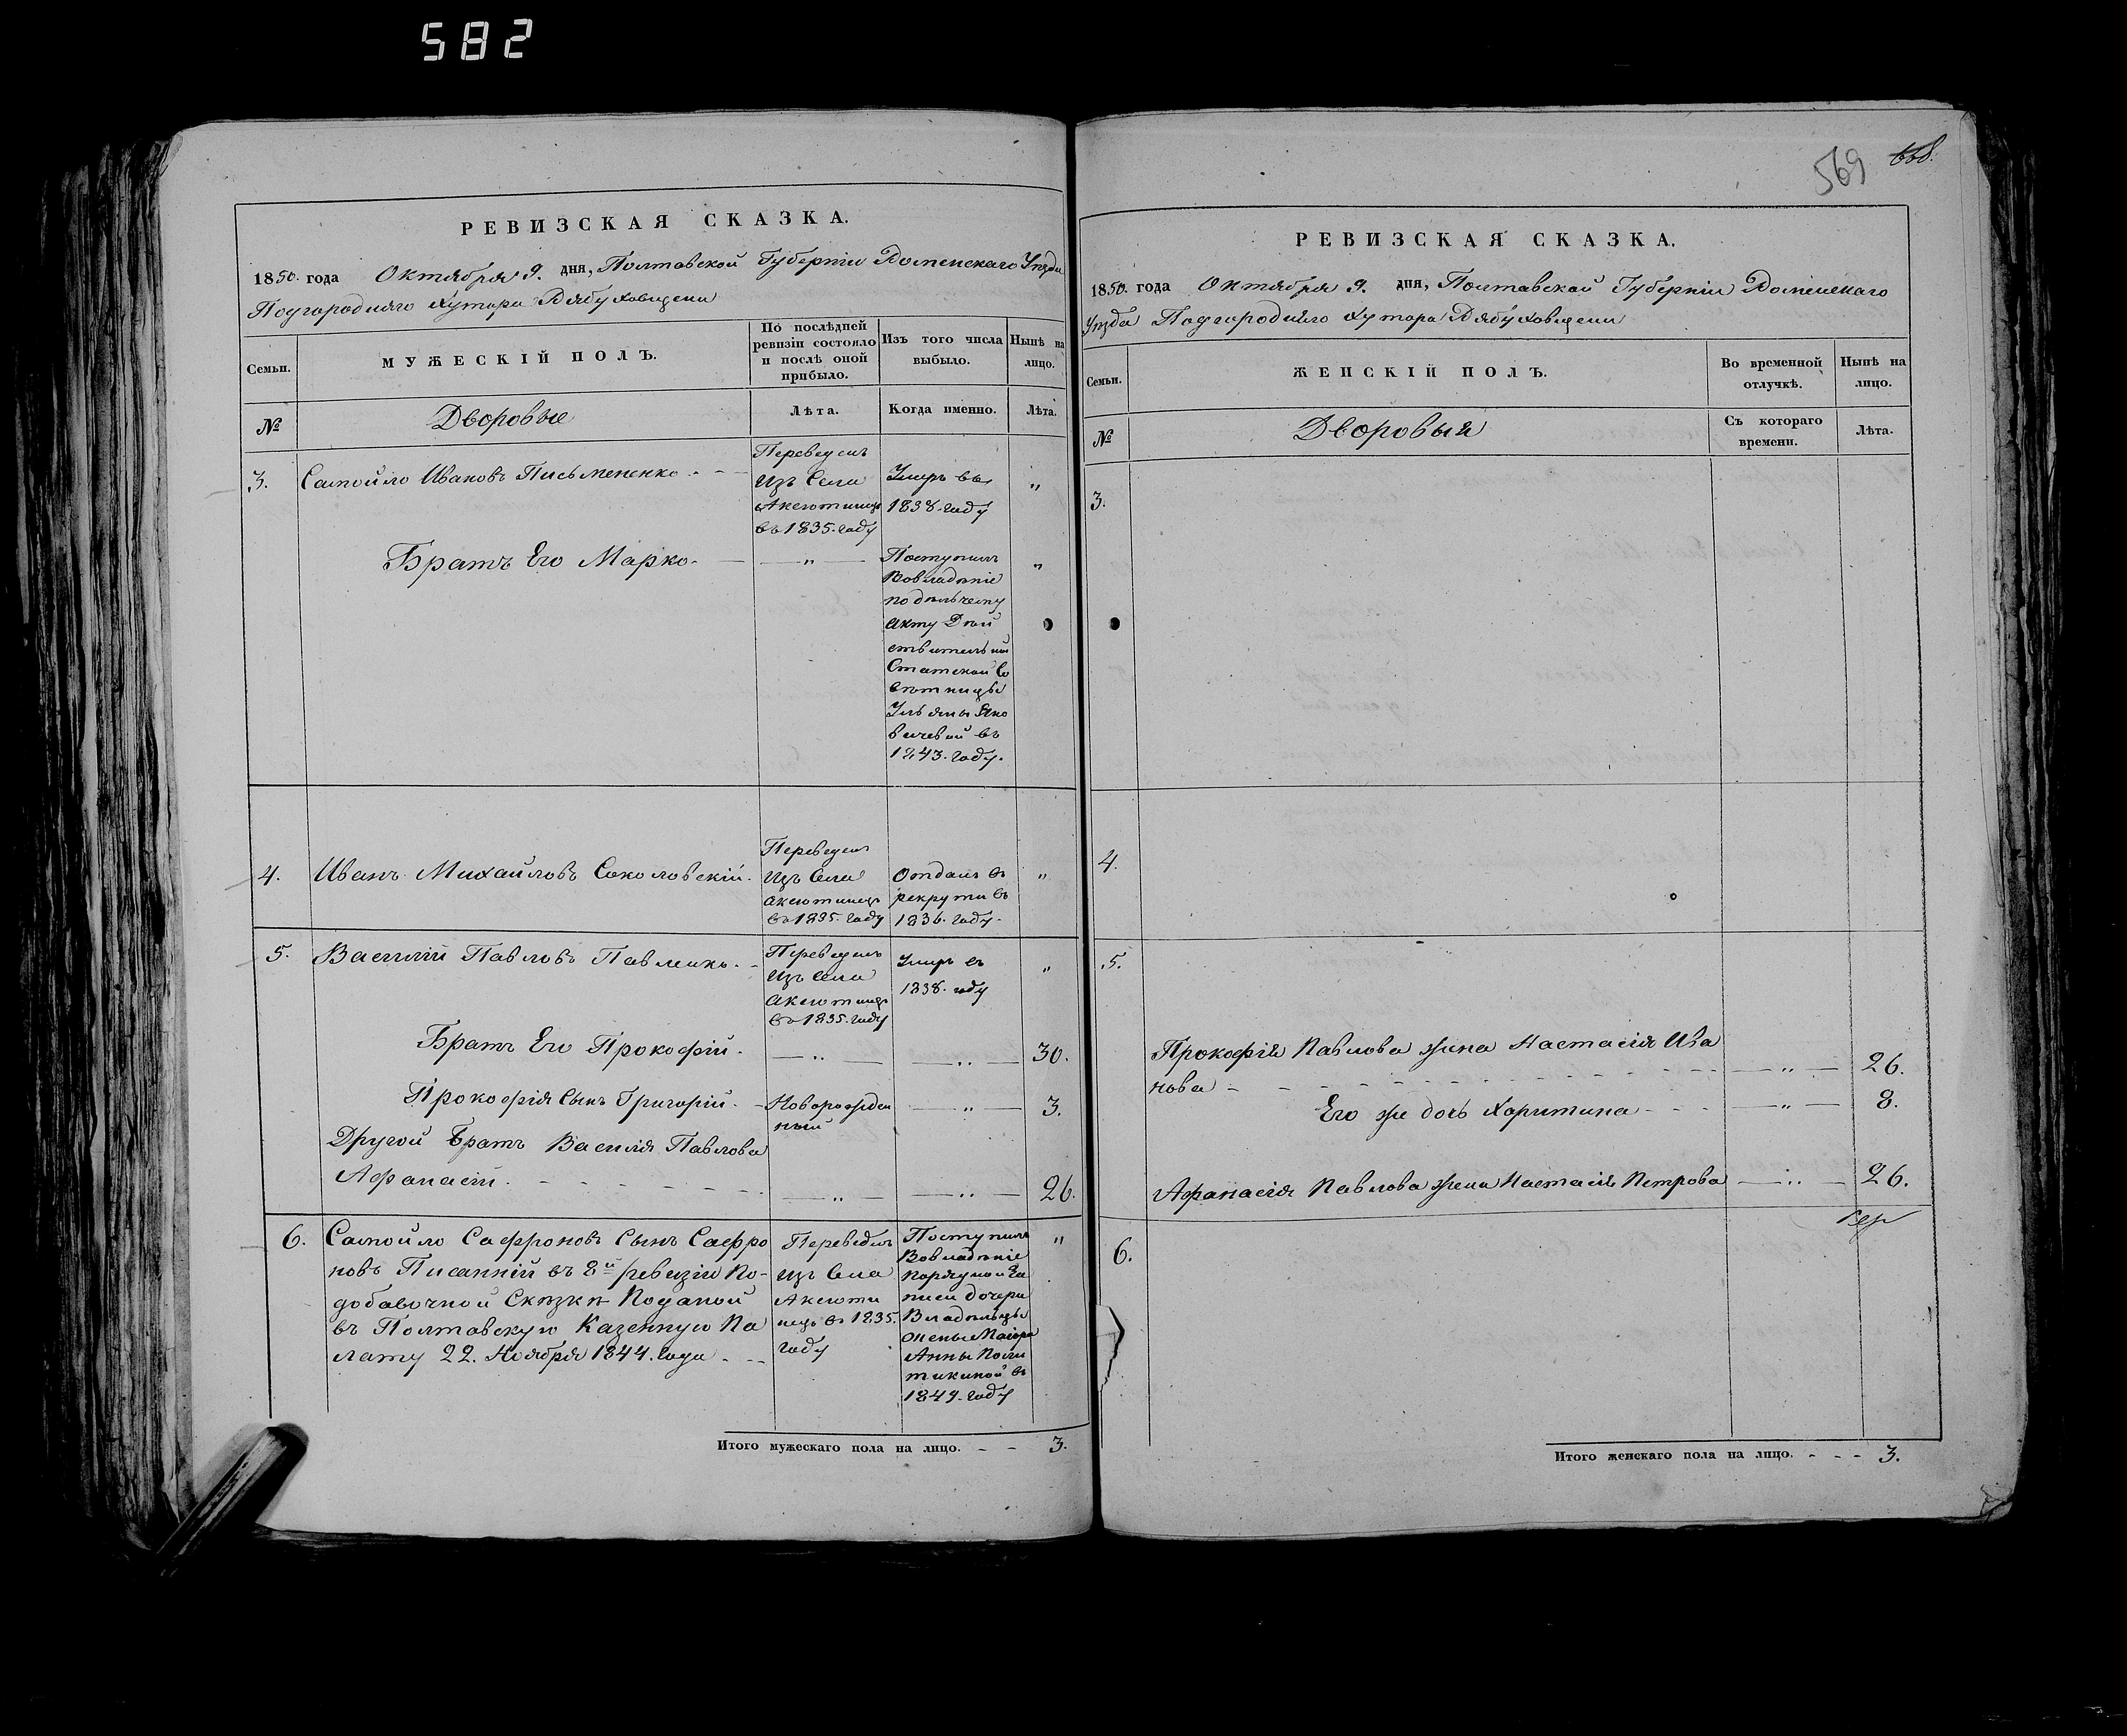 582
569
668.
РЕВИЗСКАЯ СКАЗКА.
1850. года Октября 9. дня, Полтавской Губерніи Роменскаго Уѣзда
Подгородняго Хутора
Семьи.
МУЖЕСКІЙ ПОЛЪ.
По послѣдней
ревизіи состояло
и послѣ оной
прибыло.
Изъ того числа
выбыло.
Нынѣ на
лицо.
№
Дворовые
Лѣта.
Когда именно.
Лѣта.
3. Самойло Ивановъ Письмененко - -
Переведенъ
изъ Села
Аксютинецъ
въ 1835. году
Умръ въ
1838. году
"
Братъ Его Марко. —
— " —
Поступилъ
Вовладѣніе
по дѣльчему
акту Дѣй
ствительной
Статской Со
вѣтницы
Ульяны Яко
вичевой въ
1843. году.
"
4. Иванъ Михайловъ Соколовскій.
Переведенъ
изъ Села
аксютинецъ
въ 1835. году
Отданъ въ
рекруты въ
1836. году.
"
5. Василій Павловъ Павленко. -
Переведенъ
изъ Села
аксютинецъ
въ 1835. году
Умръ въ
1838. году
"
Братъ Его Прокофій. — " — — " — 30.
Прокофія Сынъ Григорій. - Новорожден — " — 3.
ный
Другой Братъ Василія Павлова
Афанасій. - - - - - - — " — — " — 26.
6. Самойло Сафроновъ Сынъ Сафро
новъ Писанній въ 8й ревизіи По-
добавочной Сказкѣ Поданой
въ Полтавскую Казенную Па
лату 22. Ноября 1844. года - --
Переведенъ
изъ Села
Аксюти
нецъ въ 1835.
году
Поступилъ
Вовладѣніе
порядной За
писи дочери
Владѣлицы
жены Маіора
Анны Поли
тикиной въ
1849. году
"
Итого мужескаго пола на лицо. - - 3.
РЕВИЗСКАЯ СКАЗКА.
1850. года Октября 9. дня, Полтавской Губерніи Роменскаго
Уѣзда Подгороднего Хутора
Семьи.
ЖЕНСКІЙ ПОЛЪ.
Во временной
отлучкѣ.
Нынѣ на
лицо.
№
Дворовыя
Съ котораго
времени.
Лѣта.
3.
4.
5.
Прокофія Павлова жена Настасія Ива
нова - - - - - - - — " — 26.
Его же дочь Харитина - - - — " — 8.
Афанасія Павлова жена Настасія Петрова — " — 26.
6.
Итого женскаго пола на лицо. - - - 3.